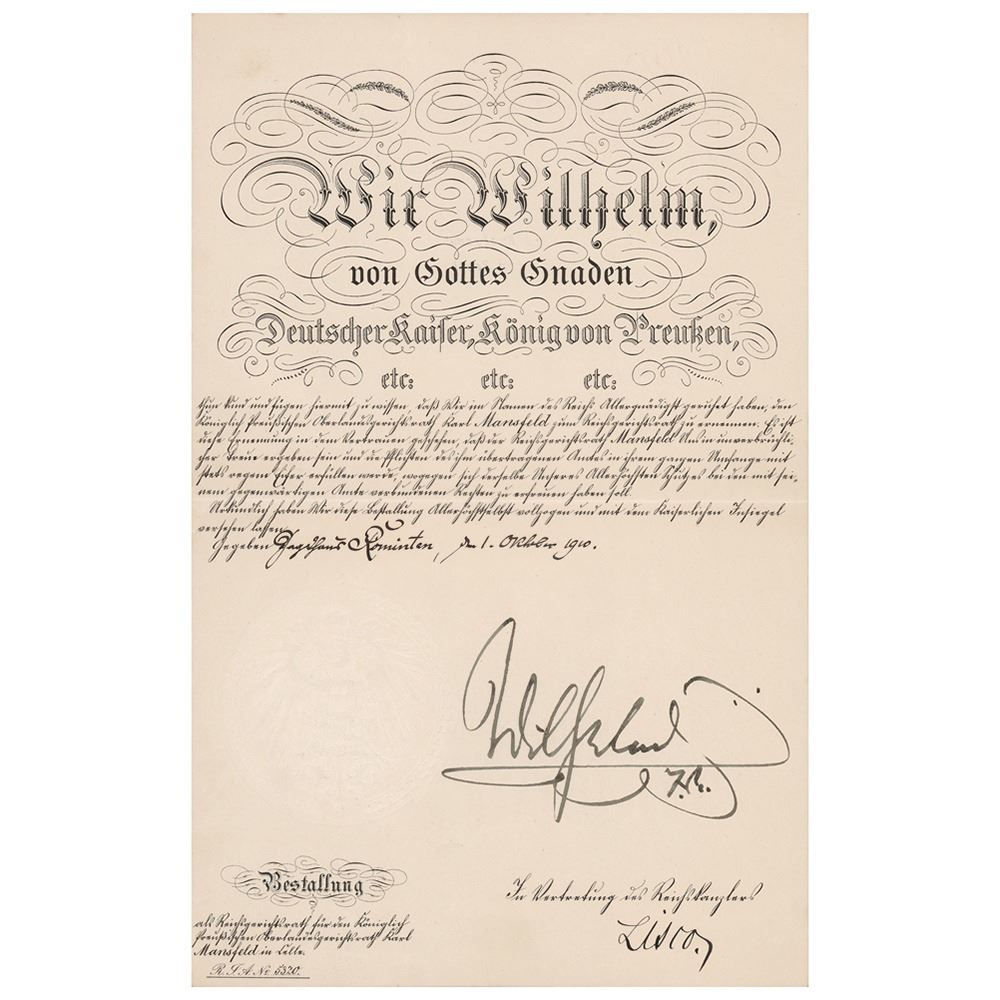 Wir Wilhelm,
von Gottes Gnaden
Deutscher Kaiser, König von Preußen,
etc: etc: etc:
thun kund und fügen hiermit zu wissen, daß Wir im Namen des Reichs Allergnädigst geruhet haben, den
Königlich Preußischen Oberlandesgerichtsrath Karl Mansfeld zum Reichsgerichtsrath zu ernennen. Es ist
diese Ernennung in dem Vertrauen geschehen, daß der Reichsgerichtsrath Mansfeld Uns in unverbrüchli-
cher Treue ergeben sein und die Pflichten des ihm übertragenen Amtes in ihrem ganzen Umfange mit
stets regem Eifer erfüllen werde, wogegen sich derselbe Unseres Allerhöchsten Schutzes bei den mit sei-
nem gegenwärtigen Amte verbundenen Rechten zu erfreuen haben soll.
Urkundlich haben Wir diese Bestallung Allerhöchstselbst vollzogen und mit dem Kaiserlichen Insiegel
versehen lassen.
Gegeben Jagdhaus Rominten, den 1. Oktober 1910.
Wilhelm
I.R.
Bestallung
In Vertretung des Reichskanzlers
Lisco.
als Reichsgerichtsrath für den Königlich
Preußischen Oberlandesgerichtsrath Karl
Mansfeld in Celle.
R. J. A. No 5320.